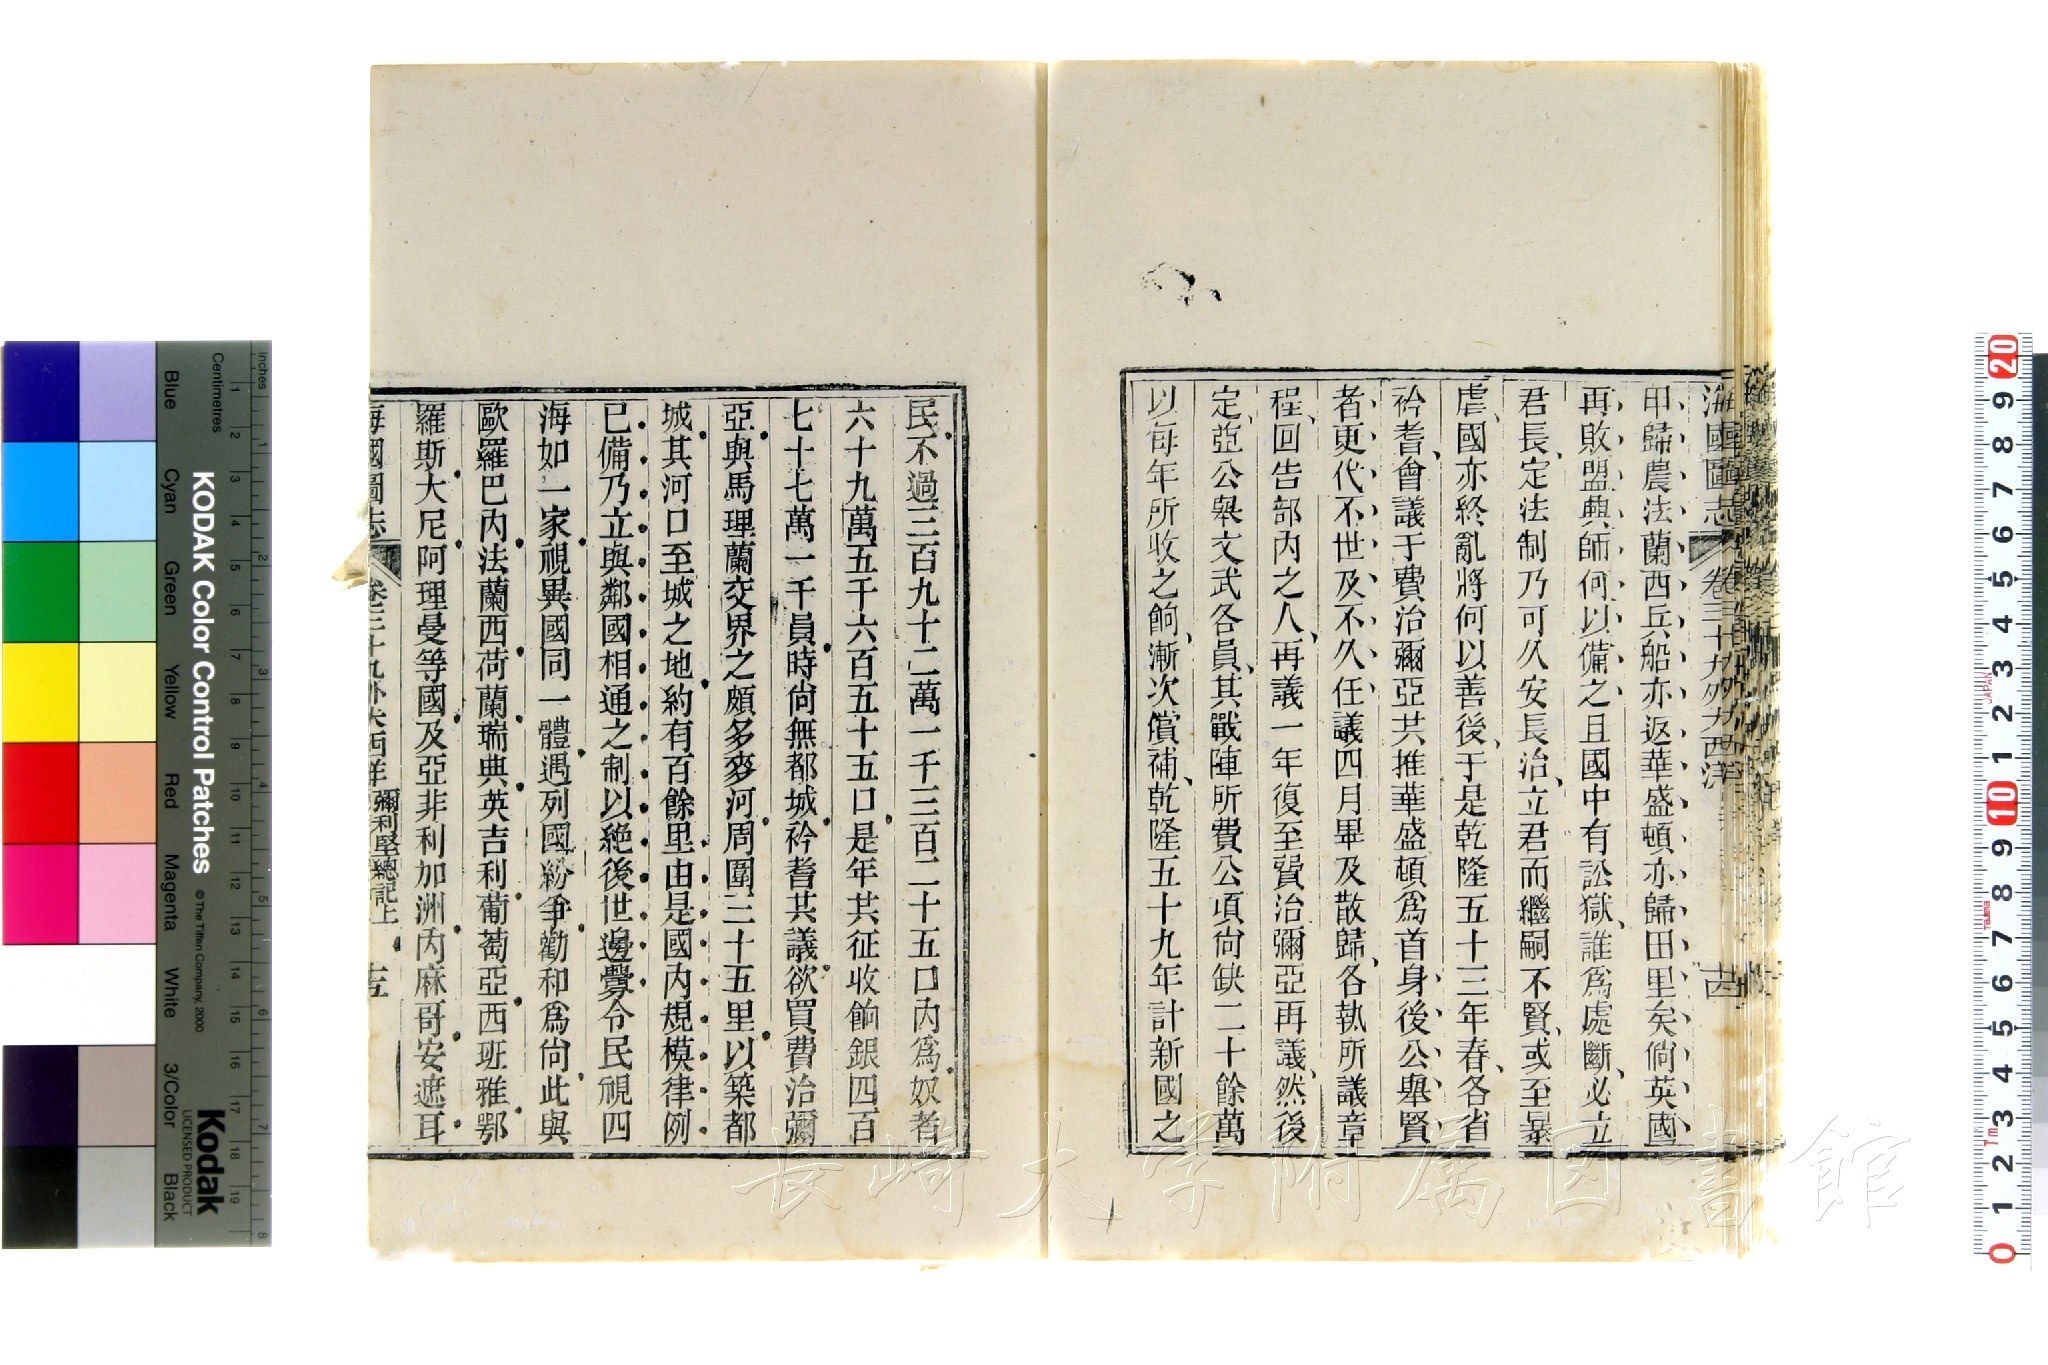 海國圖志 卷三十九外大西洋 十四
甲歸農法蘭西兵船亦返華盛頓亦歸田里矣倘英國
再敗盟興師何以備之且國中有訟獄誰爲處斷必立
君長定法制乃可久安長治立君而繼嗣不賢或至暴
虐國亦終亂將何以善後于是乾隆五十三年春各省
衿耆會議于費治彌亞共推華盛頓爲首身後公舉賢
者更代不世及不久任議四月畢及散歸各執所議章
程回告部內之人再議一年復至費治彌亞再議然後
定亞公舉文武各員其戰陣所費公項尙缺二十餘萬
以每年所收之餉漸次償補乾隆五十九年計新國之
民不過三百九十二萬一千三百二十五口內爲奴者
六十九萬五千六百五十五口是年共征收餉銀四百
七十七萬一千員時尙無都城衿耆共議欲買費治彌
亞與馬理蘭交界之頗多麥河周圍三十五里以築都
城其河口至城之地約有百餘里由是國內規模律例
已備乃立與鄰國相通之制以絶後世邊釁令民視四
海如一家視異國同一體遇列國紛爭勸和爲尙此與
歐羅巴內法蘭西荷蘭瑞典英吉利葡萄亞西班雅鄂
羅斯大尼阿理曼等國及亞非利加洲內麻哥安遮耳
海國圖志 卷三十九外大西洋 彌利堅總記上 十五
KODAK Color Control Patches
© The Tiffen Company, 2000
Kodak
LICENSED PRODUCT
Centimetres
Inches
Blue Cyan Green Yellow Red Magenta White 3/Color Black
長崎大学附属図書館
JAPAN